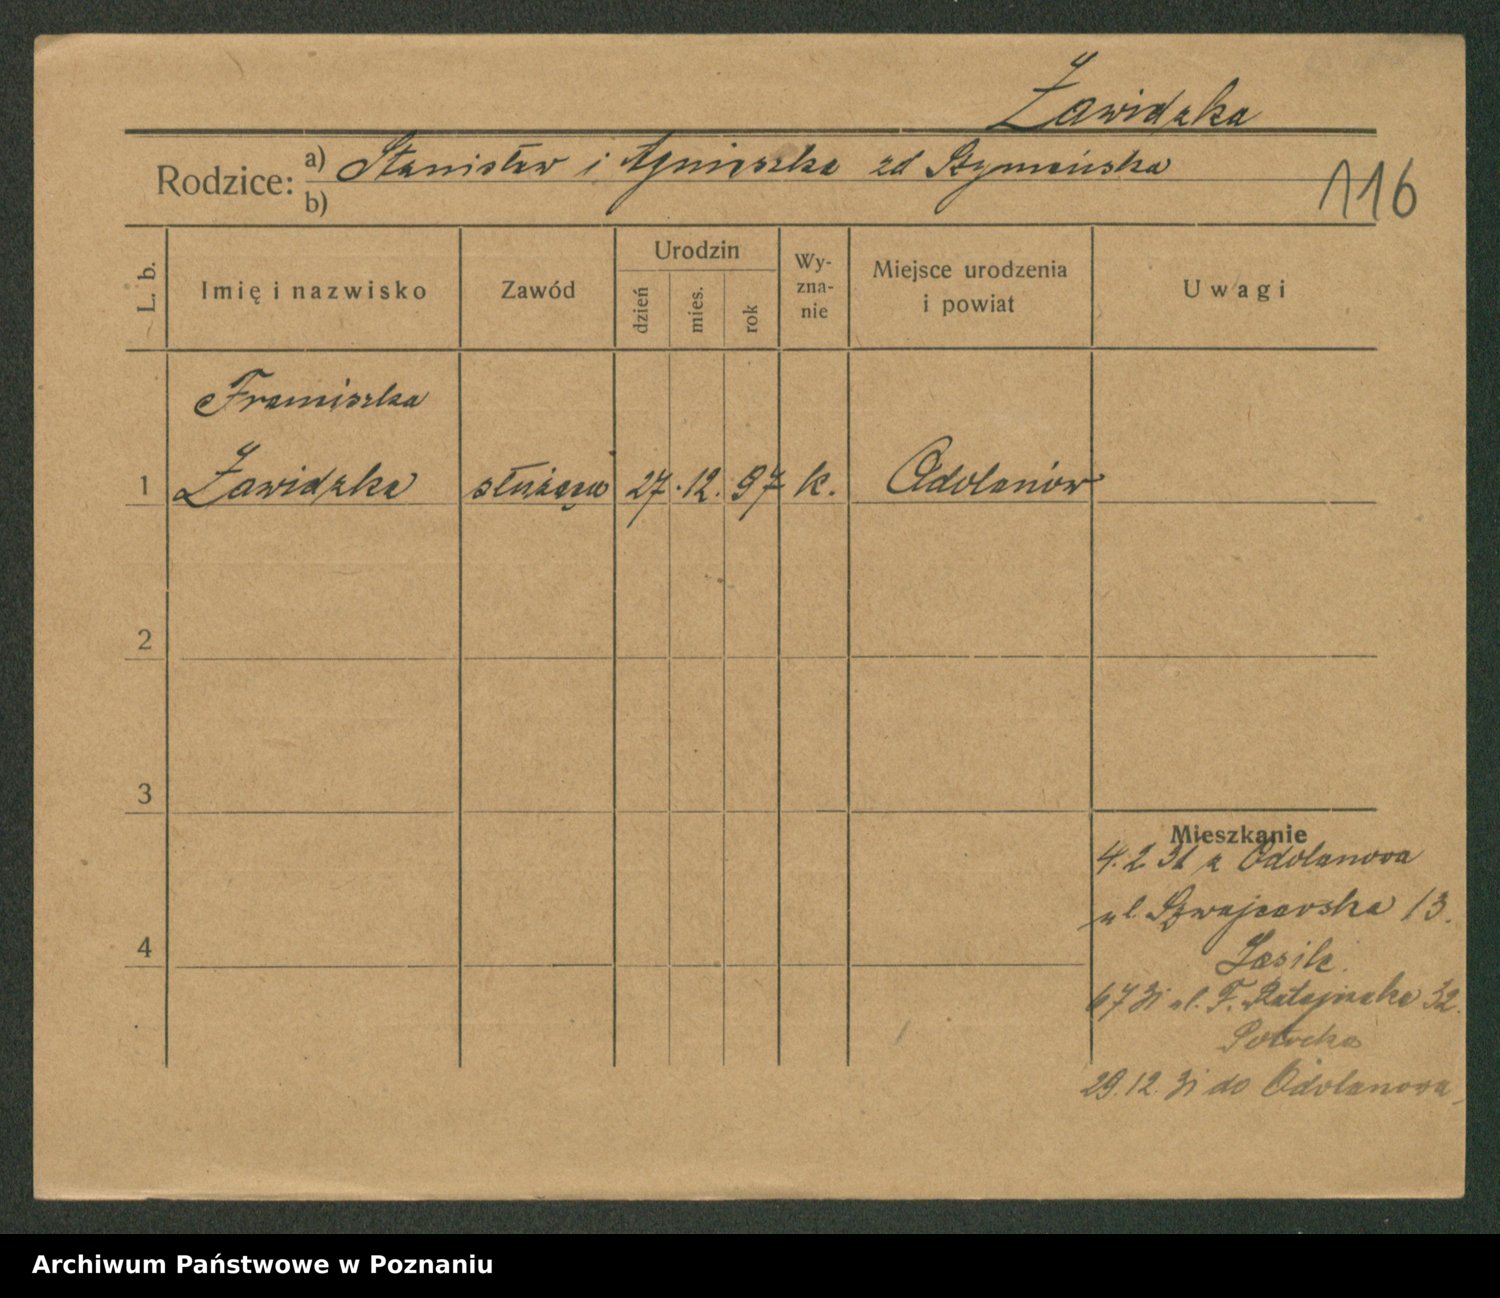 Zawidzka
Rodzice: a) Stanisław i Agnieszka zd Szymańska
b)
116
L. b.
Imię i nazwisko
Zawód
Urodzin
dzień
mies.
rok
Wy-
zna-
nie
Miejsce urodzenia
i powiat
Uwagi
Franciszka
1 Zawidzka służąca 27. 12. 97 k. Odolanów
2
3
4
Mieszkanie
4.2 31 z Odolanowa
ul. Szwajcarska 13.
Jasik.
6 7 31 ul. F. Ratajczaka 32.
Potocka
29.12.31 do Odolanowa
Archiwum Państwowe w Poznaniu